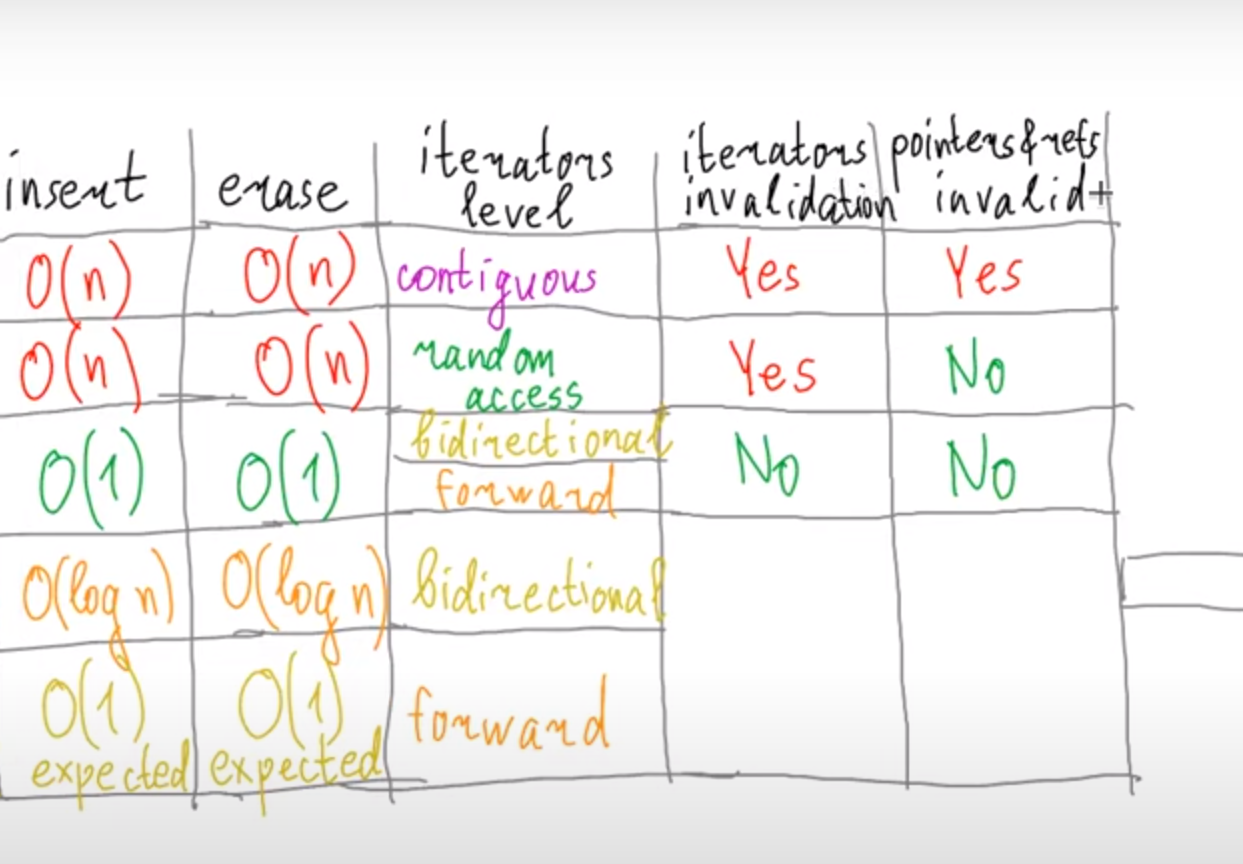 insert erase iterators level iterators invalidation pointers&refs invalid+
O(n) O(n) contiguous Yes Yes
O(n) O(n) random access Yes No
O(1) O(1) bidirectional No No
forward
O(log n) O(log n) bidirectional
O(1) expected O(1) expected forward